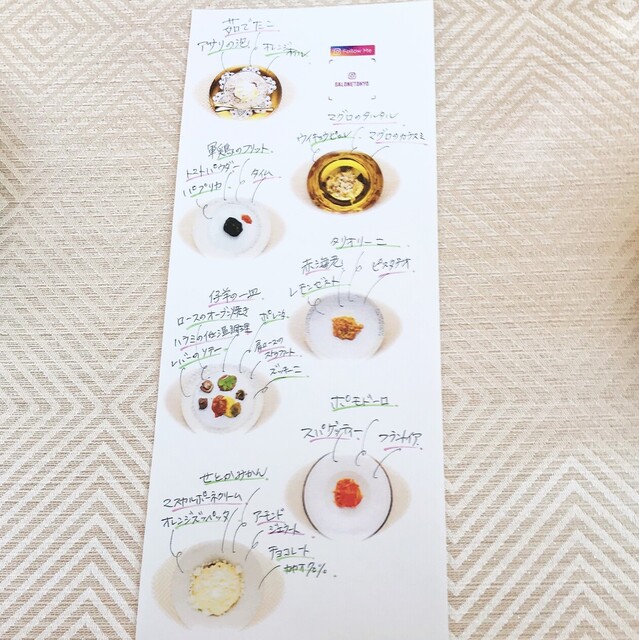 茹でたこ
アサリの泡
オレンジ
Follow Me
SALONETOKYO
マグロのタルタル
マグロのカラスミ
軍鶏のフリット
トマトパウダー
パプリカ
タイム
タリオリーニ
赤海老
ピスタチオ
レモンゼスト
仔羊の一皿
ロースのオーブン焼き
ハラミの低温調理
レバーのソテー
ポレンタ
肩ロースの
ズッキーニ
ポモドーロ
スパゲッティー
フラントイア
せとかみかん
マスカルポーネクリーム
オレンジズッパッタ
アーモンド
ジェラート
チョコレート
カカオ70%